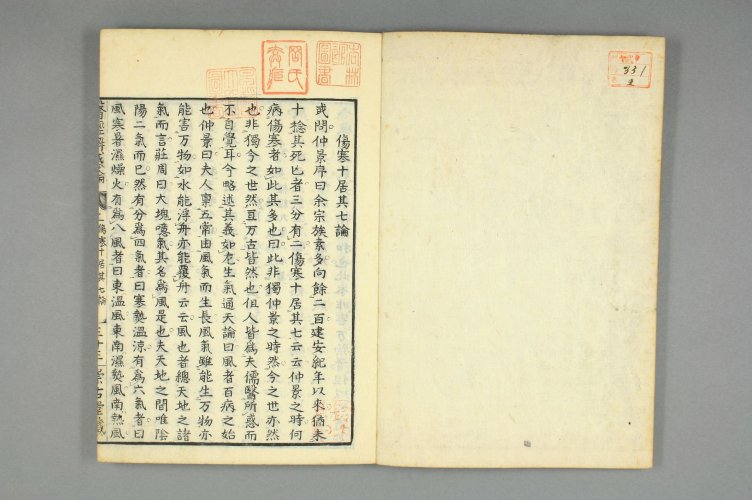 傷寒十居其七論
或問仲景序曰余宗族素多向餘二百建安紀年以來猶未
十稔其死亡者三分有二傷寒十居其七云云仲景之時何
病傷寒者如此其多也曰此非獨仲景之時然今之世亦然
也非獨今之世然亙万古皆然也但人皆爲夫儒醫所惑而
不自覺耳今略述其義如左生氣通天論曰風者百病之始
也仲景曰夫人禀五常由風氣而生長風氣雖能生万物亦
能害万物如水能浮舟亦能覆舟云云風也者總天地之諸
氣而言莊周曰大塊噫氣其名爲風是也夫天地之間唯陰
陽二氣而已然有分爲四氣者曰寒熱溫涼有爲六氣者曰
風寒暑濕燥火有爲八風者曰東溫風東南濕熱風南熱風
傷寒十居其七論
岡氏
圖書
331
2